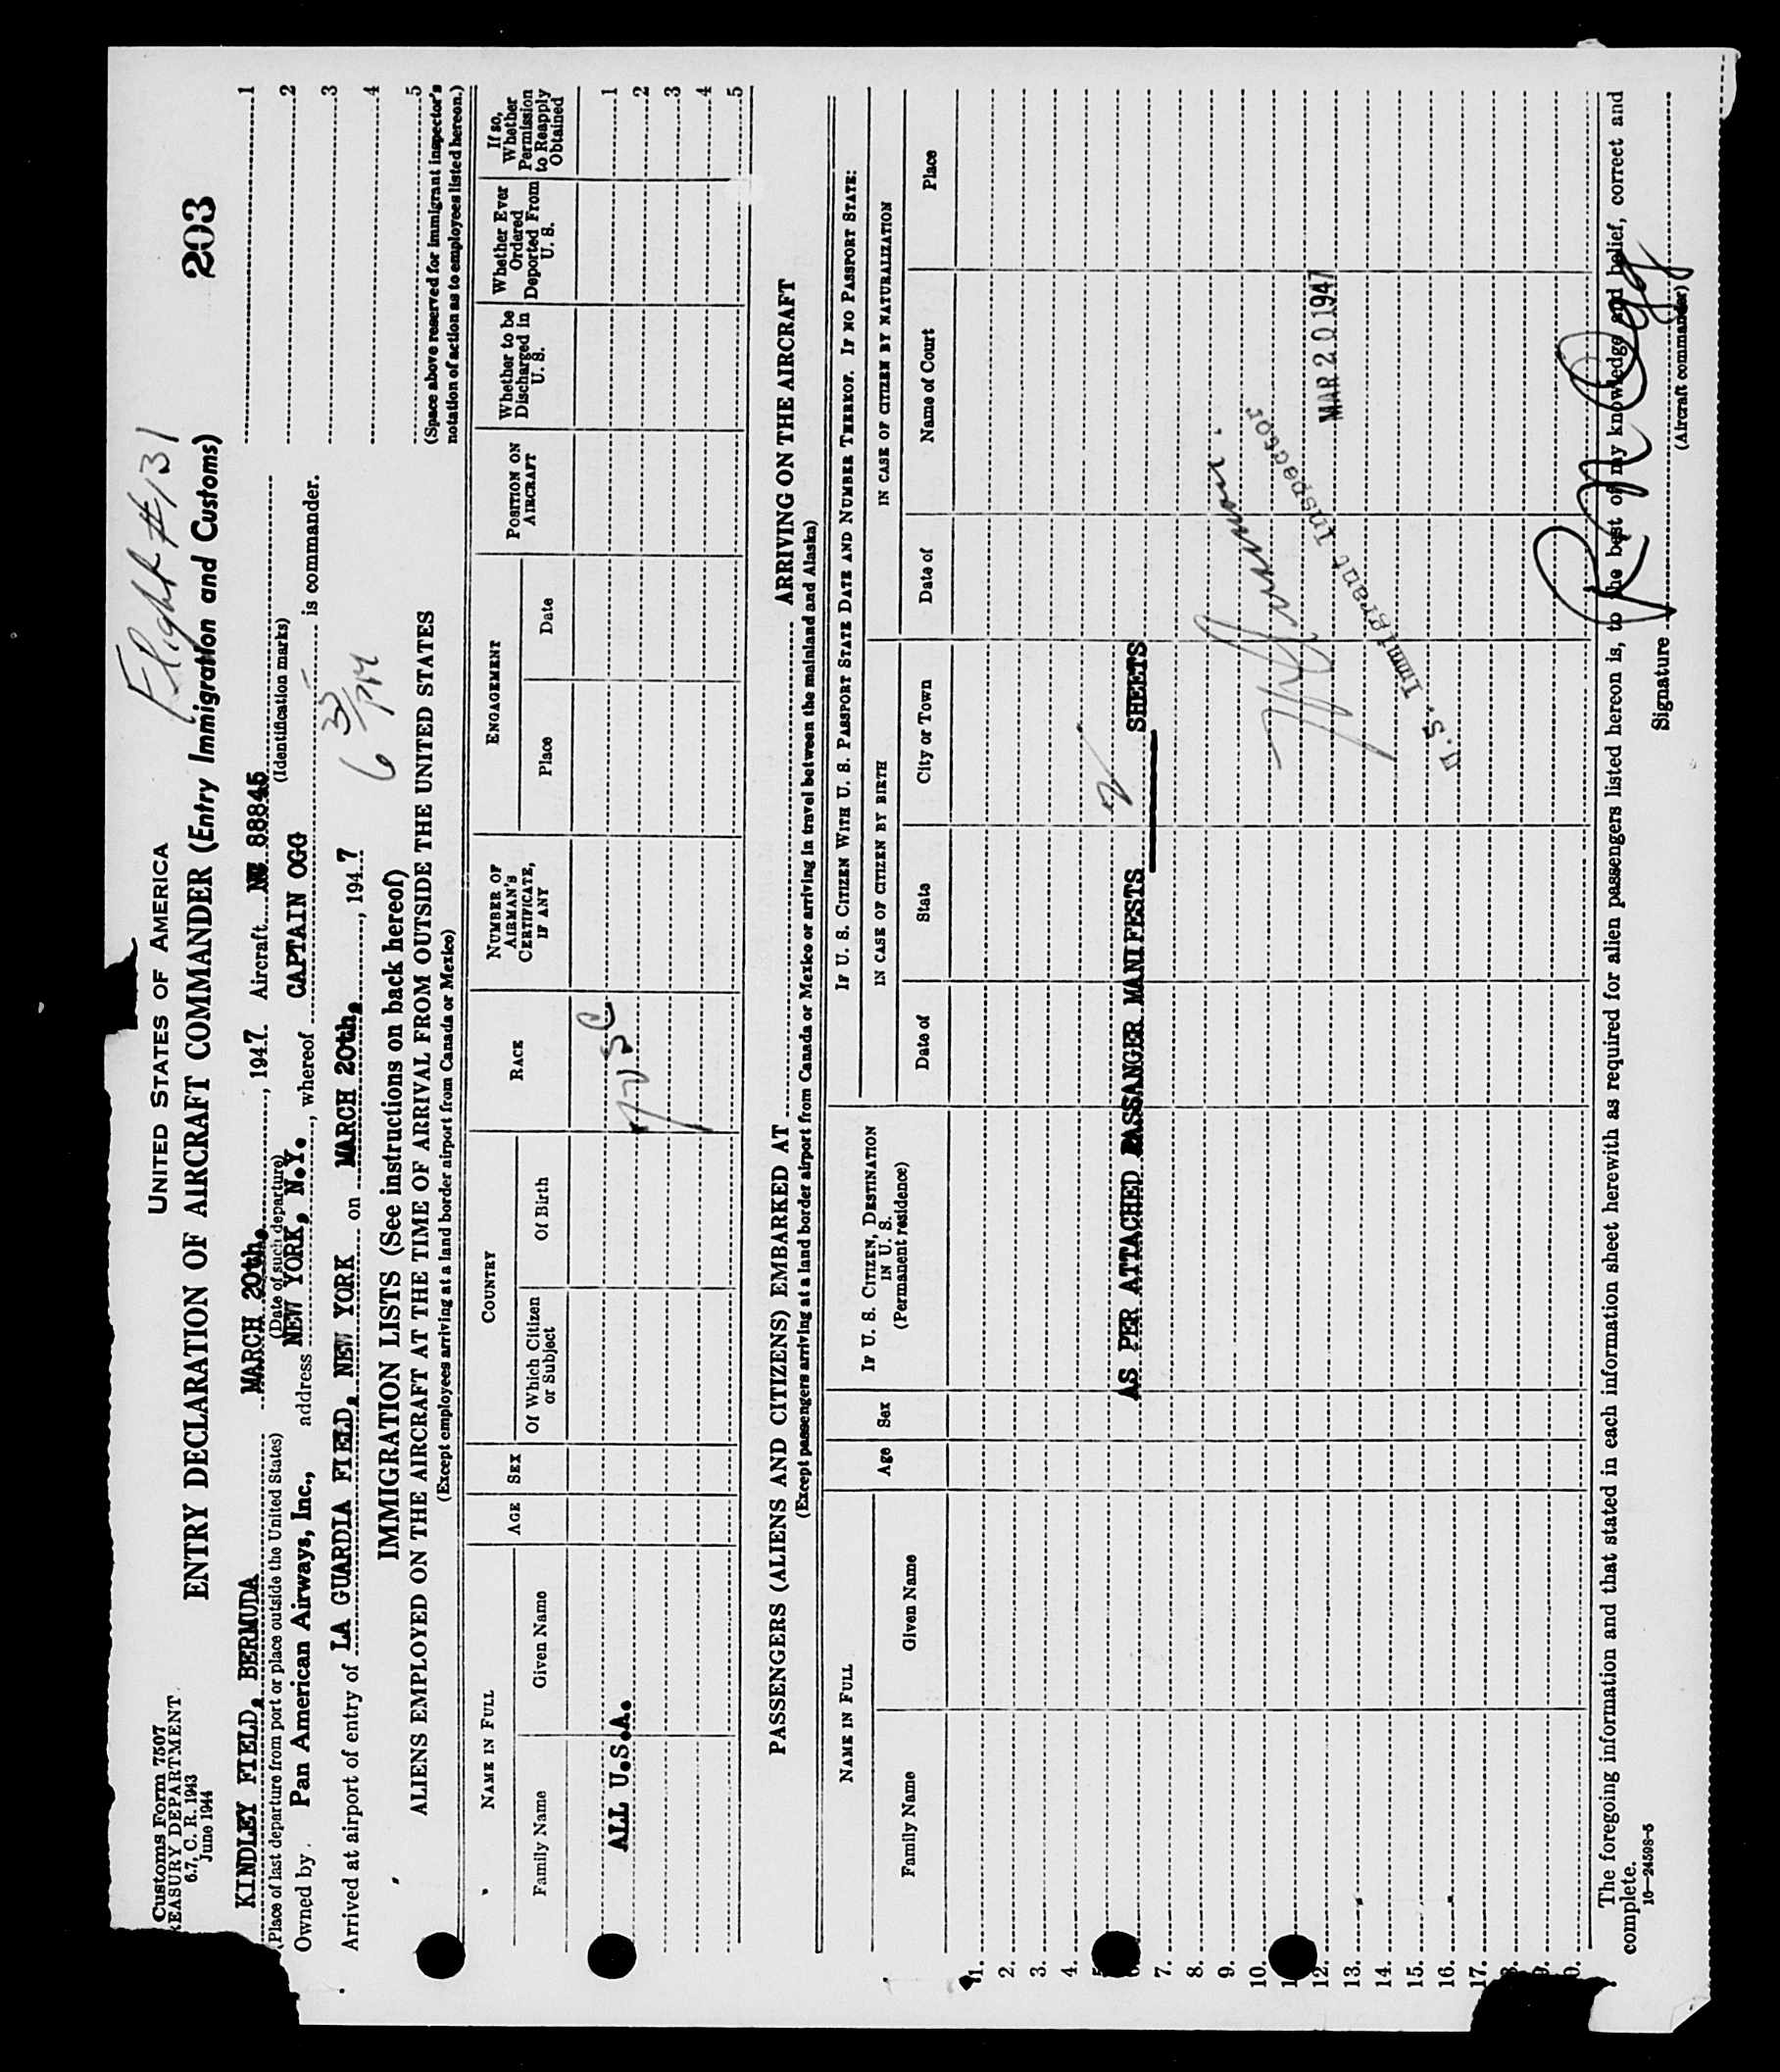 Flight #131
Customs Form 7507
EASURY DEPARTMENT
6.7, C. R. 1943
June 1944
UNITED STATES OF AMERICA
203
ENTRY DECLARATION OF AIRCRAFT COMMANDER (Entry Immigration and Customs)
KINDLEY FIELD, BERMUDA MARCH 20th, , 1947. Aircraft 88845
(Place of last departure from port or place outside the United States) (Date of such departure) (Identification marks)
Owned by Pan American Airways, Inc., address NEW YORK, N.Y. , whereof CAPTAIN OGG is commander.
Arrived at airport of entry of LA GUARDIA FIELD, NEW YORK on MARCH 20th, , 1947
PM
1
2
3
4
5
(Space above reserved for immigrant inspector's
notation of action as to employees listed hereon.)
IMMIGRATION LISTS (See instructions on back hereof)
ALIENS EMPLOYED ON THE AIRCRAFT AT THE TIME OF ARRIVAL FROM OUTSIDE THE UNITED STATES
(Except employees arriving at a land border airport from Canada or Mexico)
NAME IN FULL
Family Name
Given Name
AGE
SEX
COUNTRY
Of Which Citizen
or Subject
Of Birth
RACE
NUMBER OF
AIRMAN'S
CERTIFICATE,
IF ANY
ENGAGEMENT
Place
Date
POSITION ON
AIRCRAFT
Whether to be
Discharged in
U. S.
Whether Ever
Ordered
Deported From
U. S.
If so,
Whether
Permission
to Reapply
Obtained
ALL U.S.A.
1
2
3
4
5
PASSENGERS (ALIENS AND CITIZENS) EMBARKED AT ARRIVING ON THE AIRCRAFT
(Except passengers arriving at a land border airport from Canada or Mexico or arriving in travel between the mainland and Alaska)
NAME IN FULL
Family Name
Given Name
Age
Sex
IF U. S. CITIZEN, DESTINATION
IN U. S.
(Permanent residence)
IF U. S. CITIZEN WITH U. S. PASSPORT STATE DATE AND NUMBER THEREOF. IF NO PASSPORT STATE:
IN CASE OF CITIZEN BY BIRTH
IN CASE OF CITIZEN BY NATURALIZATION
Date of
State
City or Town
Date of
Name of Court
Place
1.
2.
3.
4.
5
6.
AS PER ATTACHED PASSANGER MANIFESTS 2 SHEETS
7.
8.
9.
10.
1
12.
13.
14.
15.
16.
17.
8.
9.
0.
U.S. Immigrant Inspector
MAR 20 1947
The foregoing information and that stated in each information sheet herewith as required for alien passengers listed hereon is, to the best of my knowledge and belief, correct and
complete.
16—24598-5
Signature R M Ogg
(Aircraft commander)